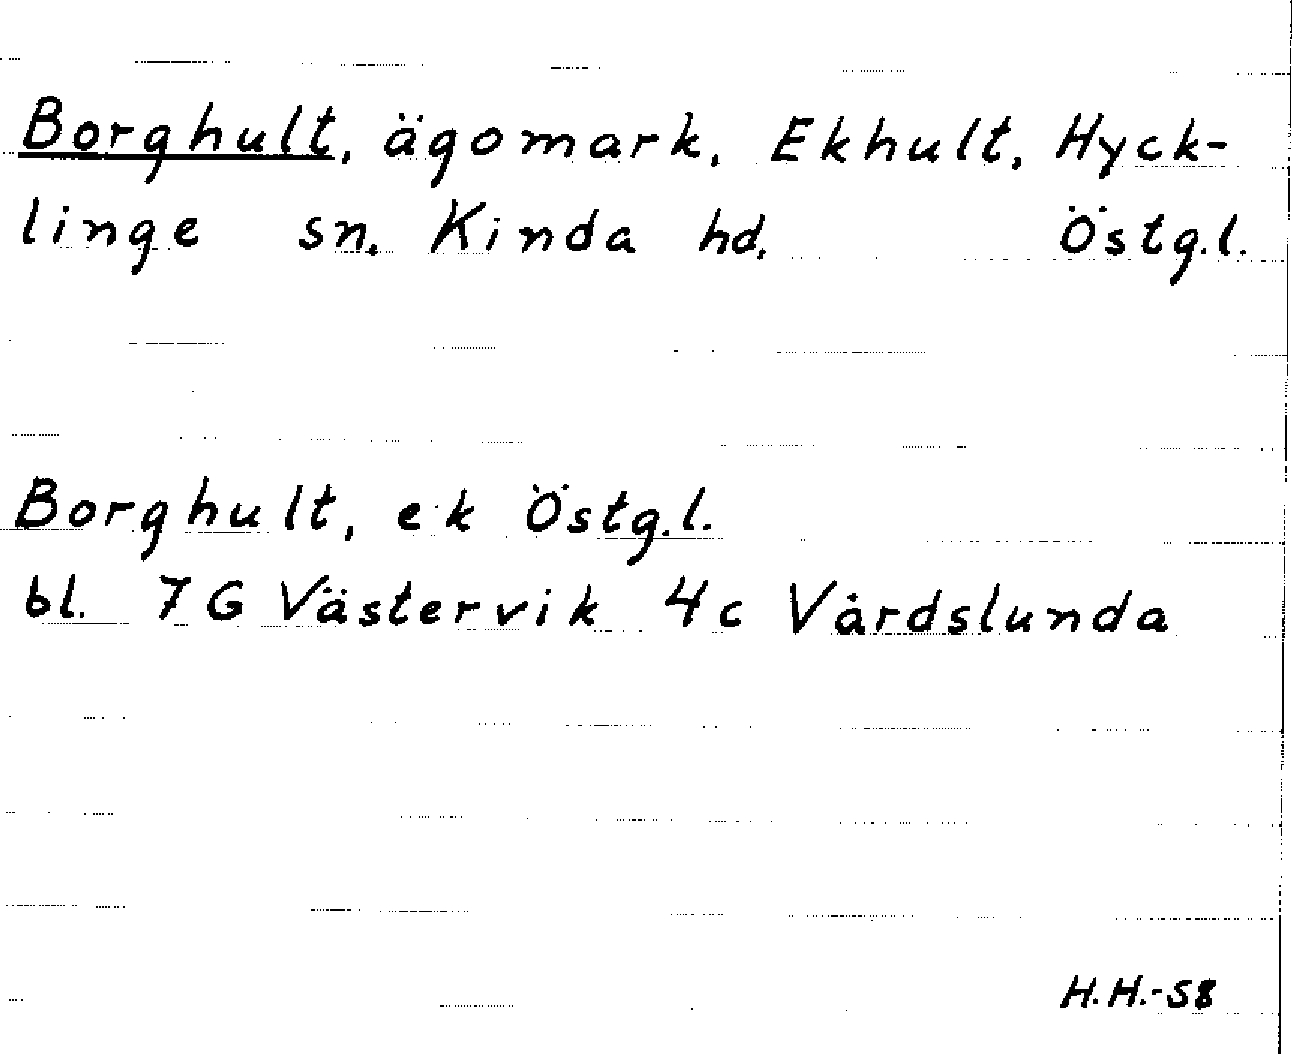 Borghult, ägomark, Ekhult, Hyck-
linge sn. Kinda hd. Östg.l.
Borghult, ek Östg.l.
bl. 7G Västervik 4c Vårdslunda
H.H.-58